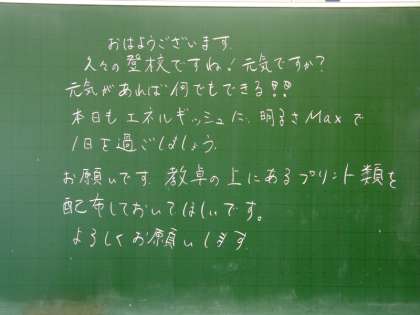 おはようございます.
久々の登校ですね!元気ですか?
元気があれば何でもできる!!
本日もエネルギッシュに、明るさMaxで
1日を過ごしましょう.
お願いです.教卓の上にあるプリント類を
配布しておいてほしいです。
よろしくお願いします